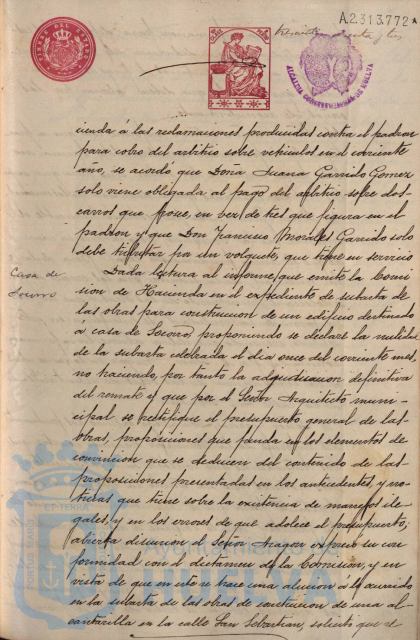 A.2.313.772*
ALCALDIA CONSTITUCIONAL DE HUELVA
cienda á las reclamaciones producidas contra el padron
para cobro del arbitrio sobre vehiculos en el corriente
año, se acordó que Doña Juana Garrido Gomez
solo viene obligada al pago del arbitrio sobre dos
carros que posee, en vez de tres que figura en el
padron y que Don Francisco Morales Garrido solo
debe tributar por un volquete, que tiene en servicio
Casa de
Socorro
Dada lectura al informe que emite la Comi
sion de Hacienda en el expediente de subasta de
las obras para construccion de un edificio destinado
a casa de Socorro, proponiendo se declare la nulidad
de la subasta celebrada el dia once del corriente mes,
no haciendo, por tanto la adjudicacion definitiva
del remate y que por el Señor Arquitecto muni-
cipal se rectifique el presupuesto general de las
obras, proposiciones que funda en los elementos de
conviccion que se deducen del contenido de las
proposiciones presentadas en los antecedentes y no-
ticias que tiene sobre la existencia de manejos ile-
gales, y en los errores de que adolece el presupuesto,
abierta discusion el Señor Aragon expresa su con
formidad con el dictamen de la Comision, y en
vista de que en este se hace una alusion á lo ocurrido
en la subasta de las obras de construccion de una al
cantarilla en la calle San Sebastian, solicita que el
PORTUS MARIS
ET TERRÆ
Ayuntamiento de
HUELVA